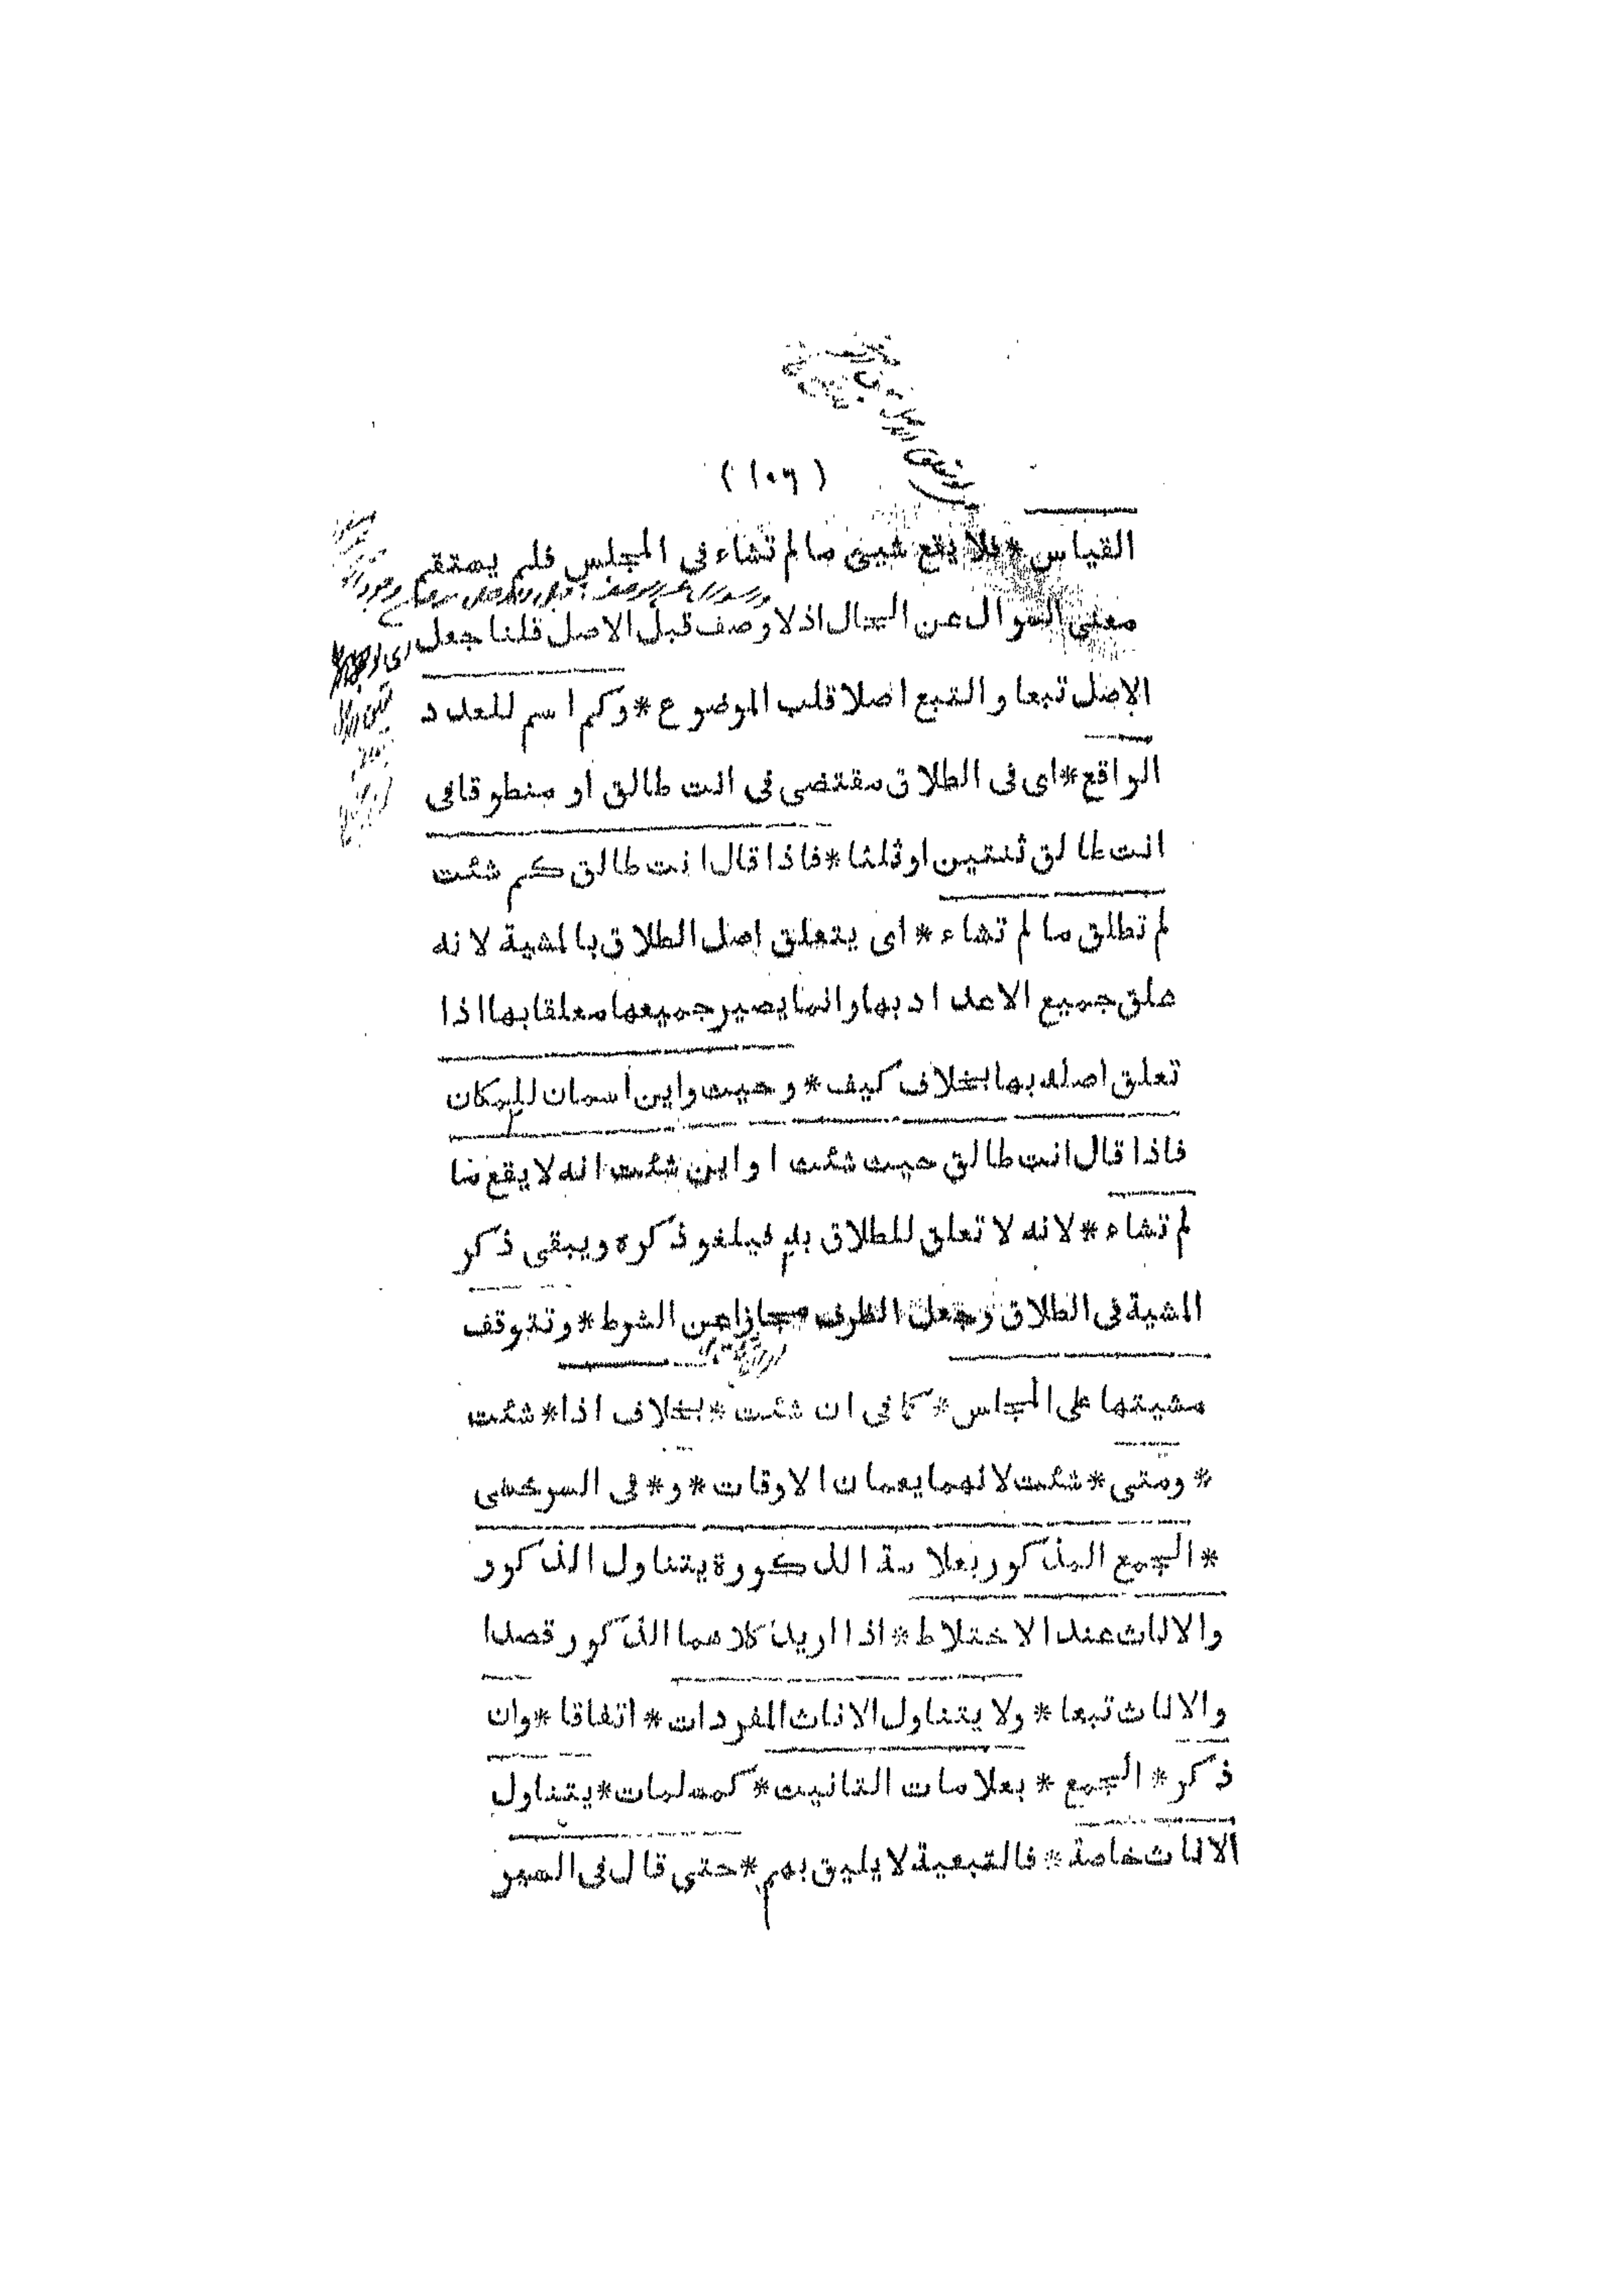 (١٠٦)
القياس * فلا يقع شيئ ما لم تشاء في المجلس فلم يستقم
معنى السوال عن الحال اذ لا وصف قبل الاصل قلنا جعل
الاصل تبعا و التبع اصلا قلب الموضوع * وكم اسم للعدد
الواقع * اى فى الطلاق مقتضى فى انت طالق او منطوقا فى
انت طالق ثنتين او ثلثا * فاذا قال انت طالق كم شئت
لم تطلق ما لم تشاء * اى يتعلق اصل الطلاق بالمشية لانه
علق جميع الاعداد بها وانما يصير جميعها معلقا بها اذا
تعلق اصله بها بخلاف كيف * وحيث واين اسمان للمكان
فاذا قال انت طالق حيث شئت او اين شئت انه لا يقع ما
لم تشاء * لانه لا تعلق للطلاق به فيلغو ذكره ويبقى ذكر
المشية فى الطلاق وجعل الظرف مجازا عن الشرط * وتتوقف
مشيتها على المجلس * كما فى ان شئت * بخلاف اذا * شئت
* ومتى * شئت لانهما يعمان الاوقات * و * فى السرخسى
* الجمع المذكور بعلامة الذكورة يتناول الذكور
والاناث عند الاختلاط * اذا اريد كلاهما الذكور قصدا
والاناث تبعا * ولا يتناول الاناث المفردات * اتفاقا * وان
ذكر * الجمع * بعلامات التانيث * كمسلمات * يتناول
الاناث خاصة * فالتبعية لا يليق بهم * حتى قال فى السير